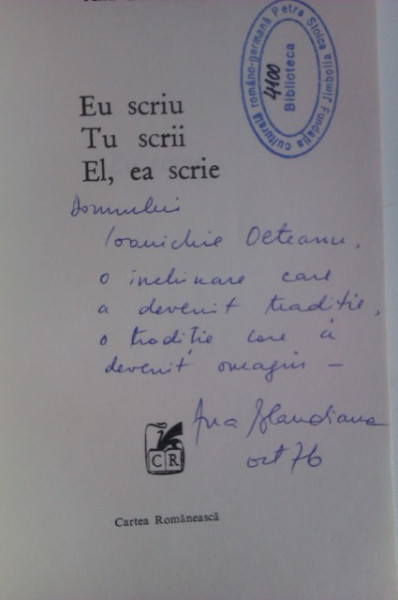 Eu scriu
Tu scrii
El, ea scrie
Fundația culturală româno-germană Petre Stoica Jimbolia
4100
Biblioteca
Domnului
Ioanichie Olteanu,
o închinare care
a devenit tradiție,
o tradiție care a
devenit omagiu —
Ana Blandiana
oct 76
CR
Cartea Românească